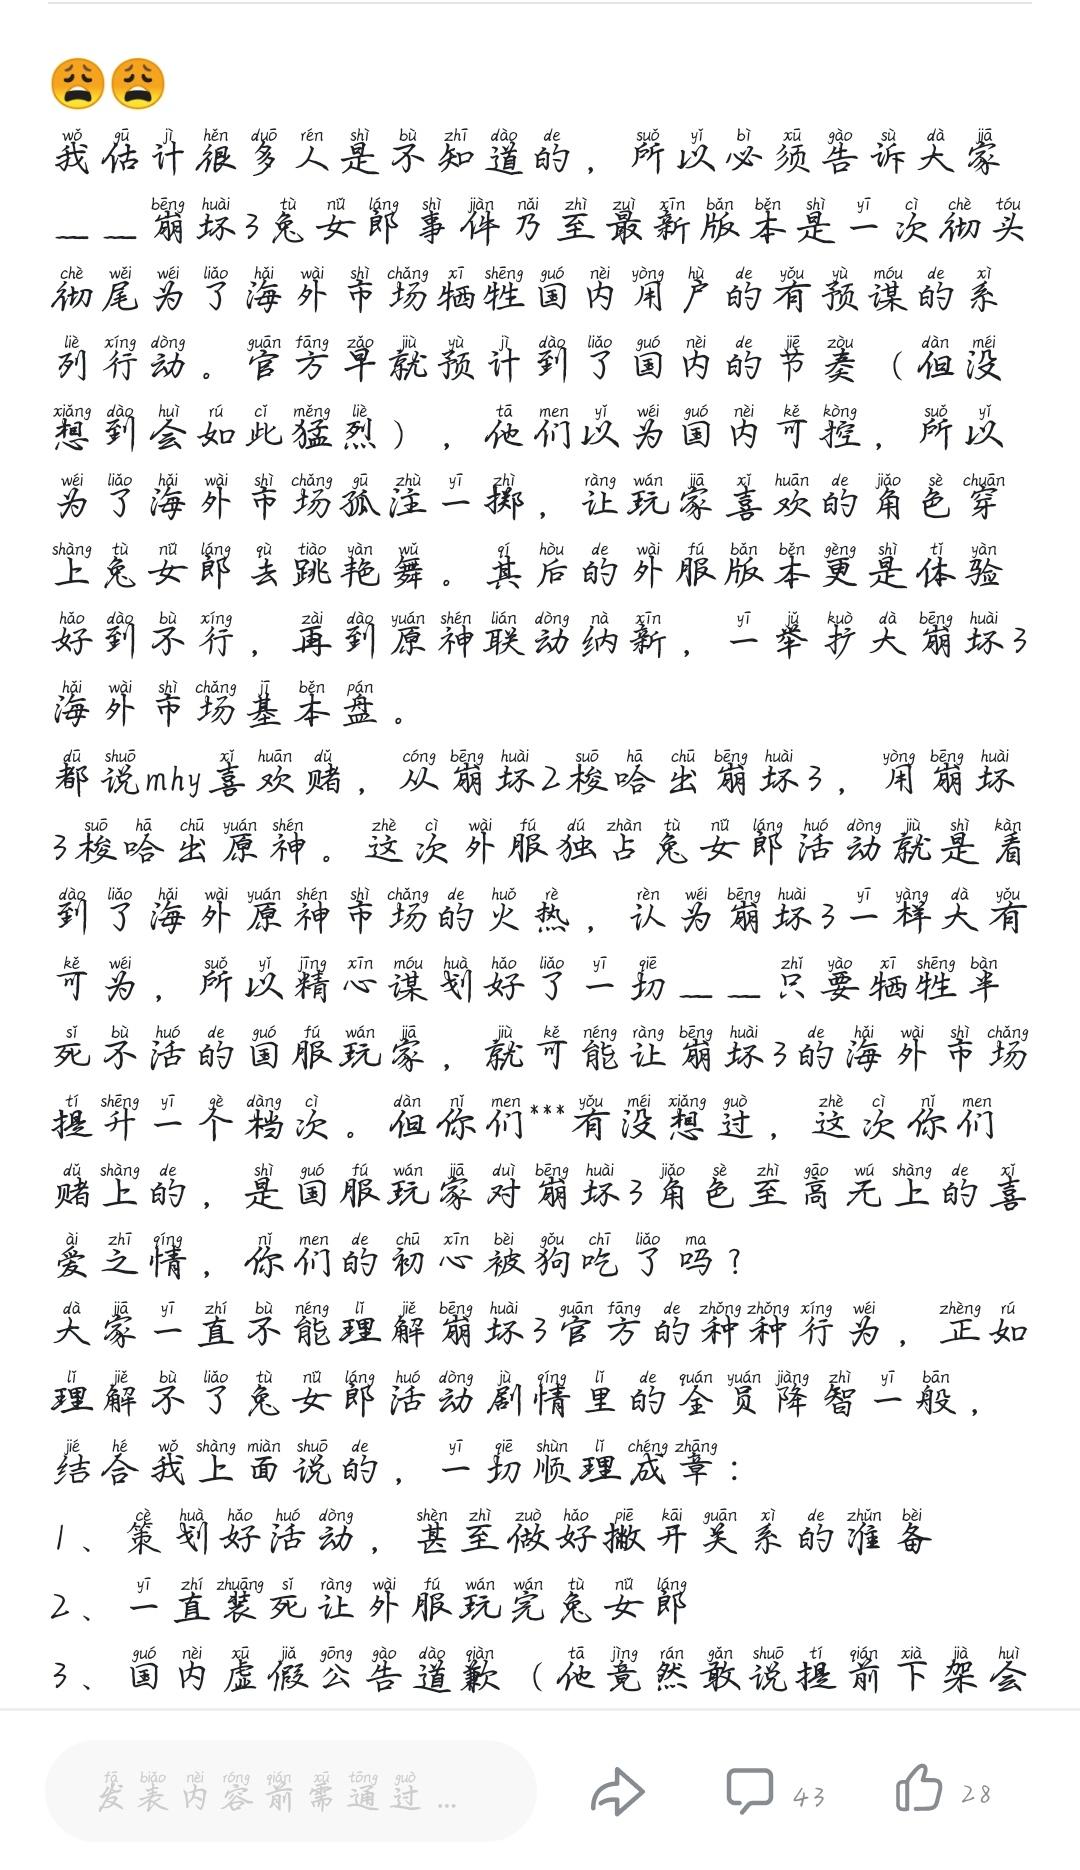 😩😩
我估计很多人是不知道的，所以必须告诉大家
——崩坏3兔女郎事件乃至最新版本是一次彻头
彻尾为了海外市场牺牲国内用户的有预谋的系
列行动。官方早就预计到了国内的节奏（但没
想到会如此猛烈），他们以为国内可控，所以
为了海外市场孤注一掷，让玩家喜欢的角色穿
上兔女郎去跳艳舞。其后的外服版本更是体验
好到不行，再到原神联动纳新，一举扩大崩坏3
海外市场基本盘。
都说mhy喜欢赌，从崩坏2梭哈出崩坏3，用崩坏
3梭哈出原神。这次外服独占兔女郎活动就是看
到了海外原神市场的火热，认为崩坏3一样大有
可为，所以精心谋划好了一切——只要牺牲半
死不活的国服玩家，就可能让崩坏3的海外市场
提升一个档次。但你们***有没想过，这次你们
赌上的，是国服玩家对崩坏3角色至高无上的喜
爱之情，你们的初心被狗吃了吗？
大家一直不能理解崩坏3官方的种种行为，正如
理解不了兔女郎活动剧情里的全员降智一般，
结合我上面说的，一切顺理成章：
1、策划好活动，甚至做好撇开关系的准备
2、一直装死让外服玩完兔女郎
3、国内虚假公告道歉（他竟然敢说提前下架会
发表内容前需通过... 43 28